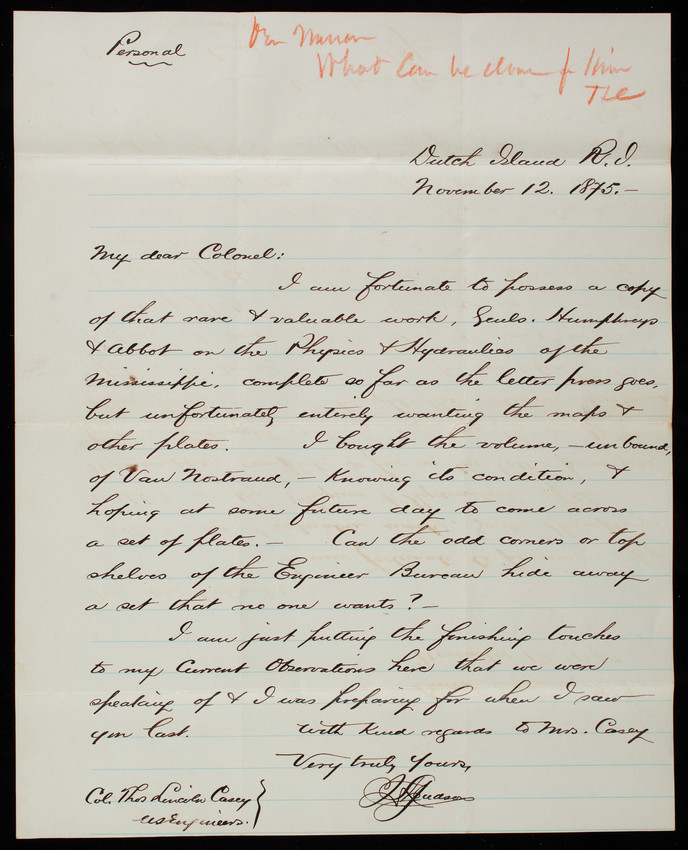 Personal
What can be done for him
TLC
Dutch Island R.I.
November 12. 1875.-
My dear Colonel:
I am fortunate to possess a copy
of that rare & valuable work, Genls. Humphreys
& Abbot on the Physics & Hydraulics of the
Mississippi, complete so far as the letter press goes,
but unfortunately entirely wanting the maps &
other plates. I bought the volume, - unbound,
of Van Nostrand, - knowing its condition, &
hoping at some future day to come across
a set of plates. - Can the odd corners or top
shelves of the Engineer Bureau hide away
a set that no one wants? -
I am just putting the finishing touches
to my Current Observations here that we were
speaking of & I was preparing for when I saw
you last. With kind regards to Mrs. Casey
Very truly yours,
Judson
Col. Thos Lincoln Casey
US Engineers.